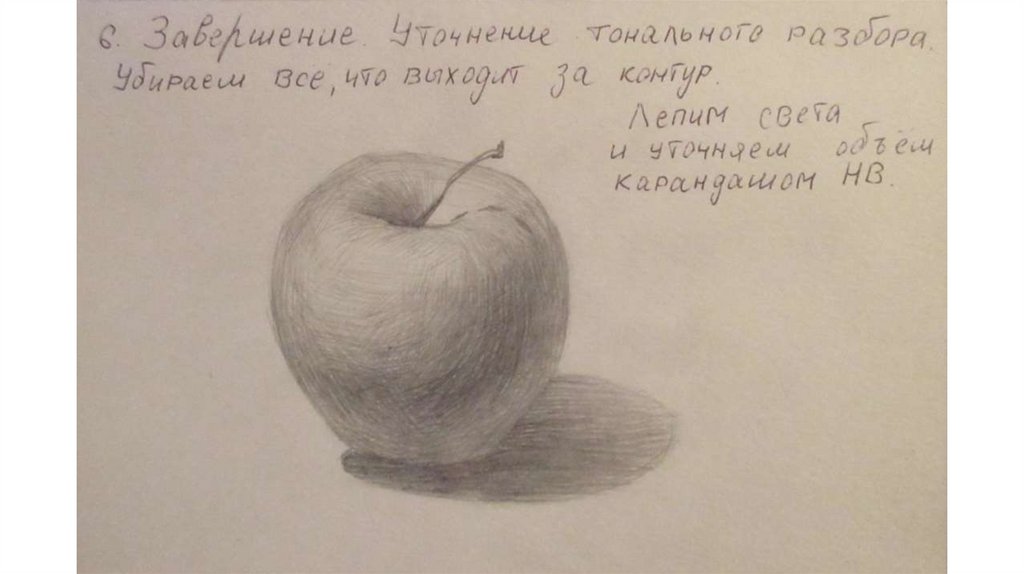 6. Завершение. Уточнение тонального разбора.
Убираем все, что выходит за контур.
Лепим света
и уточняем объём
карандашом НВ.